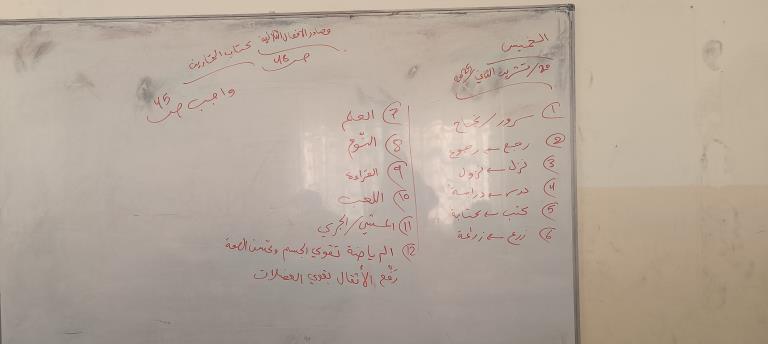 الخميس
تشرين الثاني
مصادر الأفعال الثلاثية كتاب التمارين
ص 45
واجب ص 45
① سرور / نجاح
② رجع ← رجوع
③ نزل ← نزول
④ درس ← دراسة
⑤ كتب ← كتابة
⑥ زرع ← زراعة
⑦ العلم
⑧ النوم
⑨ القراءة
⑩ اللعب
⑪ المشي / الجري
⑫ الرياضة تقوي الجسم وتحسن الصحة
رَفْع الأثقال يقوي العضلات